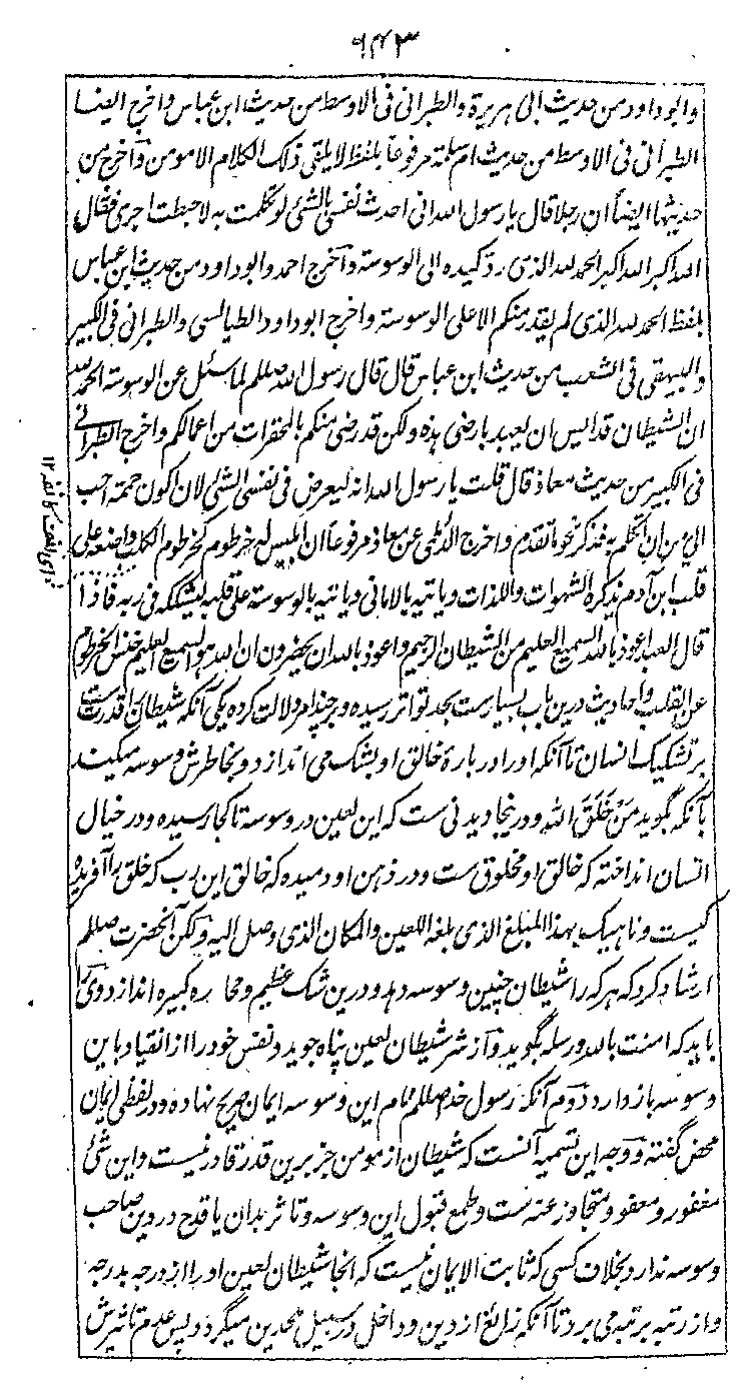 ۶۴۳
وابو داود من حديث ابى هريرة والطبرانى فى الاوسط من حديث ابن عباس واخرج ايضا
الطبرانى فى الاوسط من حديث ام سلمة مرفوعا بلفظ لا يلقى ذلك الكلام الا مومن واخرج من
حديثها ايضاً ان رجلا قال يا رسول الله انى احدث نفسى بالشئ لو تكلمت به لاحبطت اجرى فقال
الله اكبر الله اكبر الحمد لله الذى رد كيده الى الوسوسة واخرج احمد وابو داود من حديث ابن عباس
بلفظ الحمد لله الذى لم يقدر منكم الا على الوسوسة واخرج ابو داود الطيالسى والطبرانى فى الكبير
والبيهقى فى الشعب من حديث ابن عباس قال قال رسول الله صللم لما سئل عن الوسوسة الحمد لله
ان الشيطان قد ايس ان يعبد بارضى هذه ولكن قد رضى منكم بالمحقرات من اعمالكم واخرج الطبرانى
فى الكبير من حديث معاذ قال قلت يا رسول الله انه ليعرض فى نفسى الشئ لان اكون حممة احب
الىّ من ان اتكلم به فذكر نحو ما تقدم واخرج الديلمى عن معاذ مرفوعاً ان ابليس له خرطوم كخرطوم الكلب واضعه على
قلب ابن آدم يذكره الشهوات واللذات وياتيه بالامانى وياتيه بالوسوسة على قلبه ليشككه فى ربه فاذا
قال العبد اعوذ بالله السميع العليم من الشيطان الرجيم واعوذ بالله ان يحضرون ان الله هو السميع العليم خنس الخرطوم
عن القلب واحاديث درين باب بسيارست بحد تواتر رسيده وبر چند امر دلالت كرده يكى آنكه شيطان را قدرت ست
بر تشكيك انسان تا آنكه او را در بارهٔ خالق او بشك مى اندازد و بخاطرش وسوسه ميكند
بآنكه گويد مَنْ خَلَقَ الله و درينجا ديدنى ست كه اين لعين در وسوسه تا كجا رسيده و در خيال
انسان انداخته كه خالق او مخلوق ست و در ذهن او دميده كه خالق اين رب كه خلق را آفريده
كيست وناهيك بهذا المبلغ الذى بلغه اللعين والمكان الذى وصل اليه ولكن آنحضرت صللم
ارشاد كرد كه هر كه را شيطان چنين وسوسه دهد و درين شك عظيم و اندازد وى را
بايد كه امنت بالله ورسله بگويد و از شر شيطان لعين پناه جويد و نفس خود را از انقياد باين
وسوسه باز دارد دوم آنكه رسول خدا صللم نام اين وسوسه ايمان صريح نهاده و در لفظى ايمان
محض گفته و وجه اين تسميه آنست كه شيطان از مومن جز برين قدر قادر نيست و اين شئ
مغفور و معفو و متجاوز عنه ست و طمع قبول اين وسوسه و تاثر بدان يا قدح در دين صاحب
وسوسه ندارد بخلاف كسى كه ثابت الايمان نيست كه آنجا شيطان لعين او را از درجه بدرجه
و از رتبه برتبه مى برد تا آنكه زائغ از دين و داخل در سبيل ملحدين ميگردد پس عدم تاثيرش